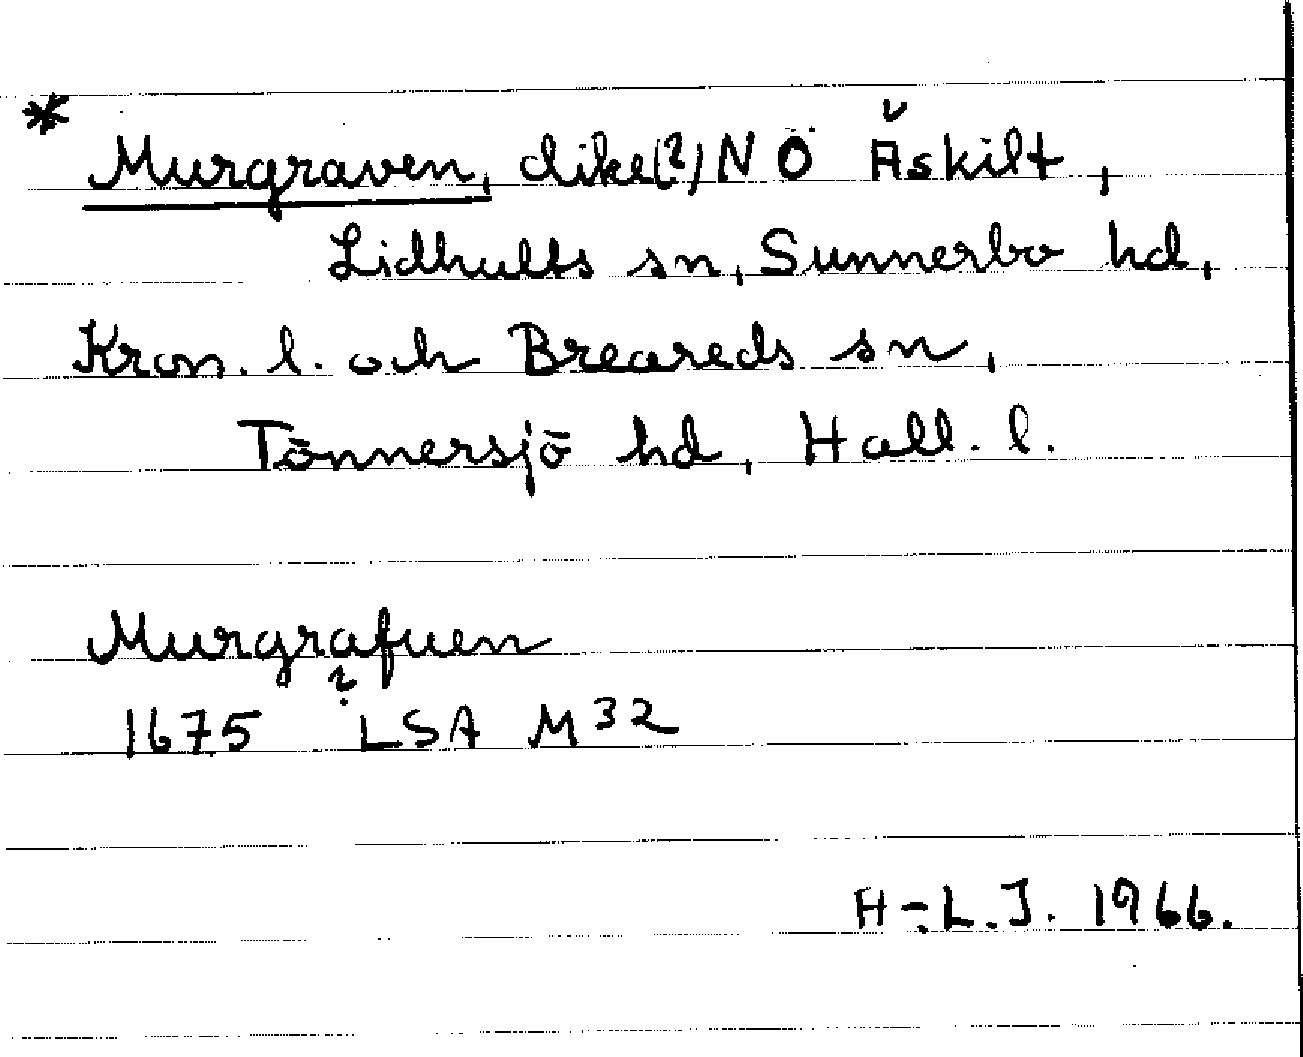 * Murgraven, dike(?) NÖ Äskilt,
Lidhults sn, Sunnerbo hd,
Kron. l. och Breareds sn,
Tönnersjö hd, Hall. l.
Murgrafuen
?
1675 LSA M32
H-L.J. 1966.